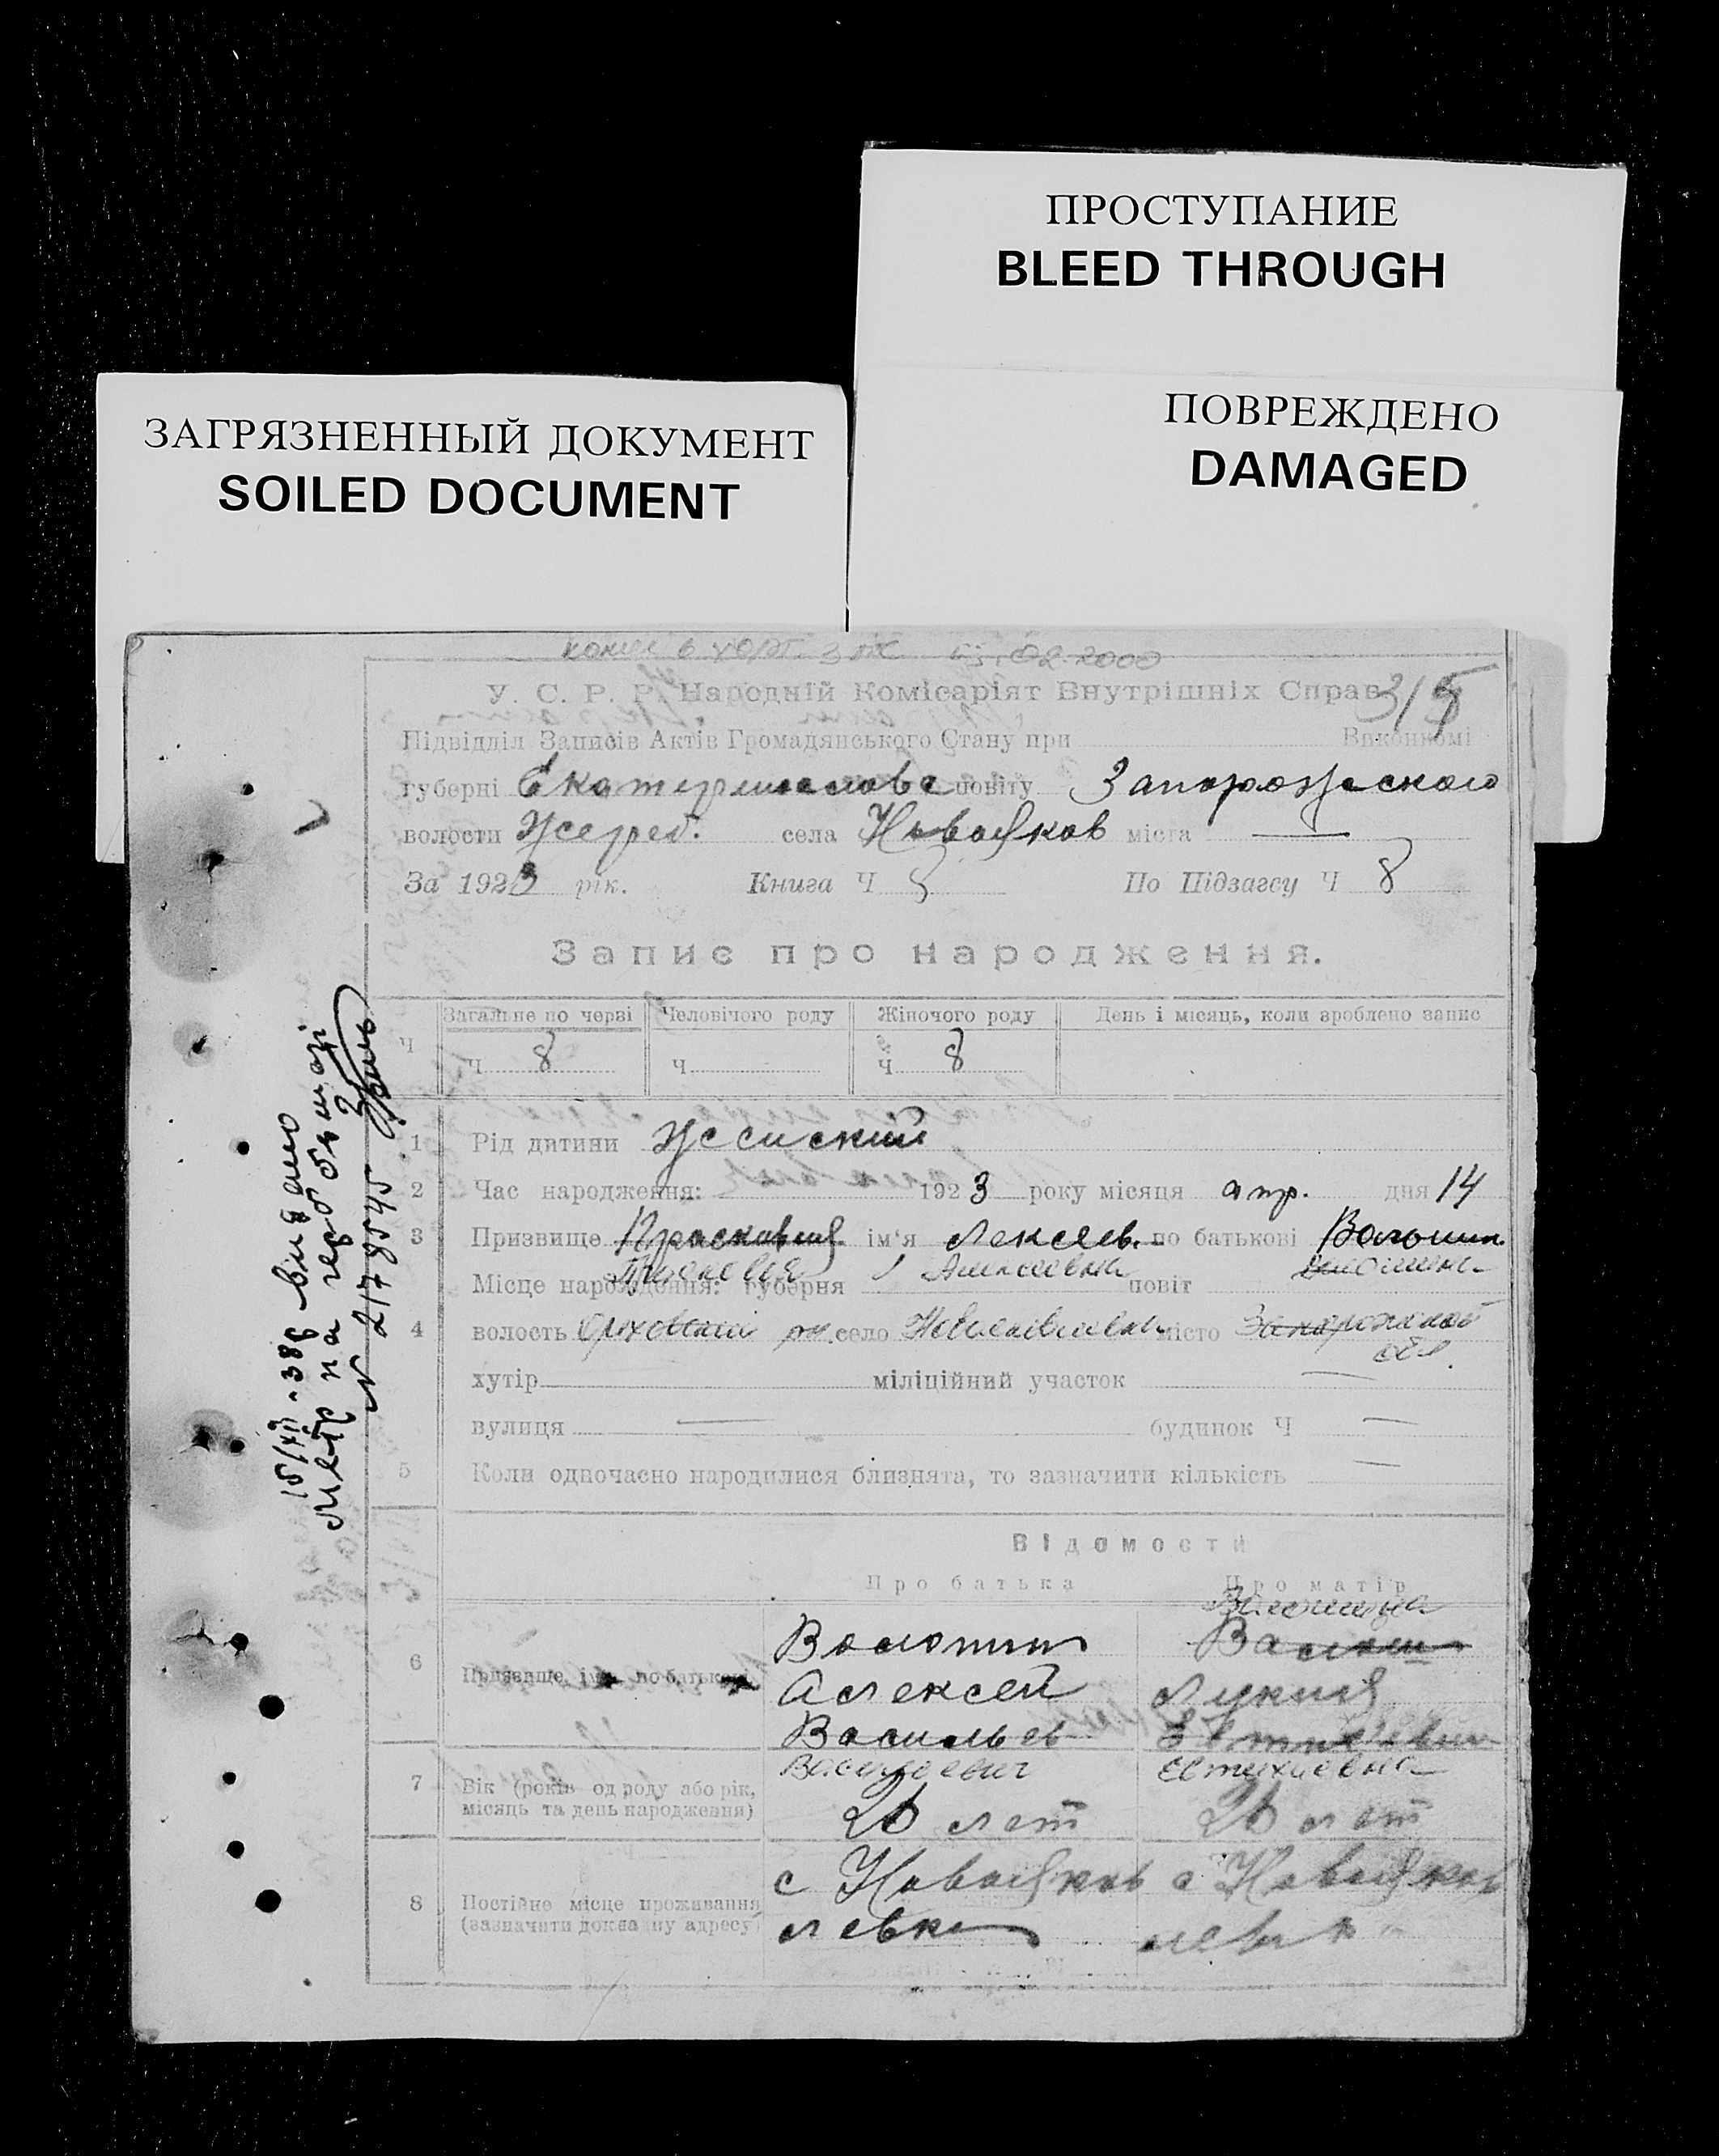 ПРОСТУПАНИЕ
BLEED THROUGH
ПОВРЕЖДЕНО
DAMAGED
ЗАГРЯЗНЕННЫЙ ДОКУМЕНТ
SOILED DOCUMENT
02.2000
У. С. Р. Р. Народній Комісаріят Внутрішніх Справ 315
Підвідділ Записів Актів Громадянського Стану при Виконкомі
губерні Екатеринослове повіту Запорожского
волости Жереб. села Новояков міста —
За 1923 рік. Книга Ч По Підзагсу Ч 8
Запис про народження.
Ч Загальне по черзі Человічого роду Жіночого роду День і місяць, коли зроблено запис
Ч 8 Ч Ч 8
1 Рід дитини Женский
2 Час народження: 1923 року місяця апр. дня 14
3 Призвище Праскавия ім'я Лексеев. по батькові Волошин
Прасковья Алексеевна Волошина
Місце народження: губерня повіт
4 волость Ореховский село Новояковлевка місто Запорожской
обл.
хутір міліційний участок —
вулиця — будинок Ч —
5 Коли одночасно народилися близнята, то зазначити кількість —
Відомости
Про батька Про матір
Волошина
6 Призвище, ім'я по батькові Волошин Волош
Алексей Лукия
Васильев
Васильевич Евтихиевна
7 Вік (років од роду або рік, місяць та день народження) 26 лет 26 лет
8 Постійне місце проживання (зазначити докладну адресу) с Новояков с Новояков
левка левка
15/XII-38р видано
Метр на герб бумазі
№ 2178545